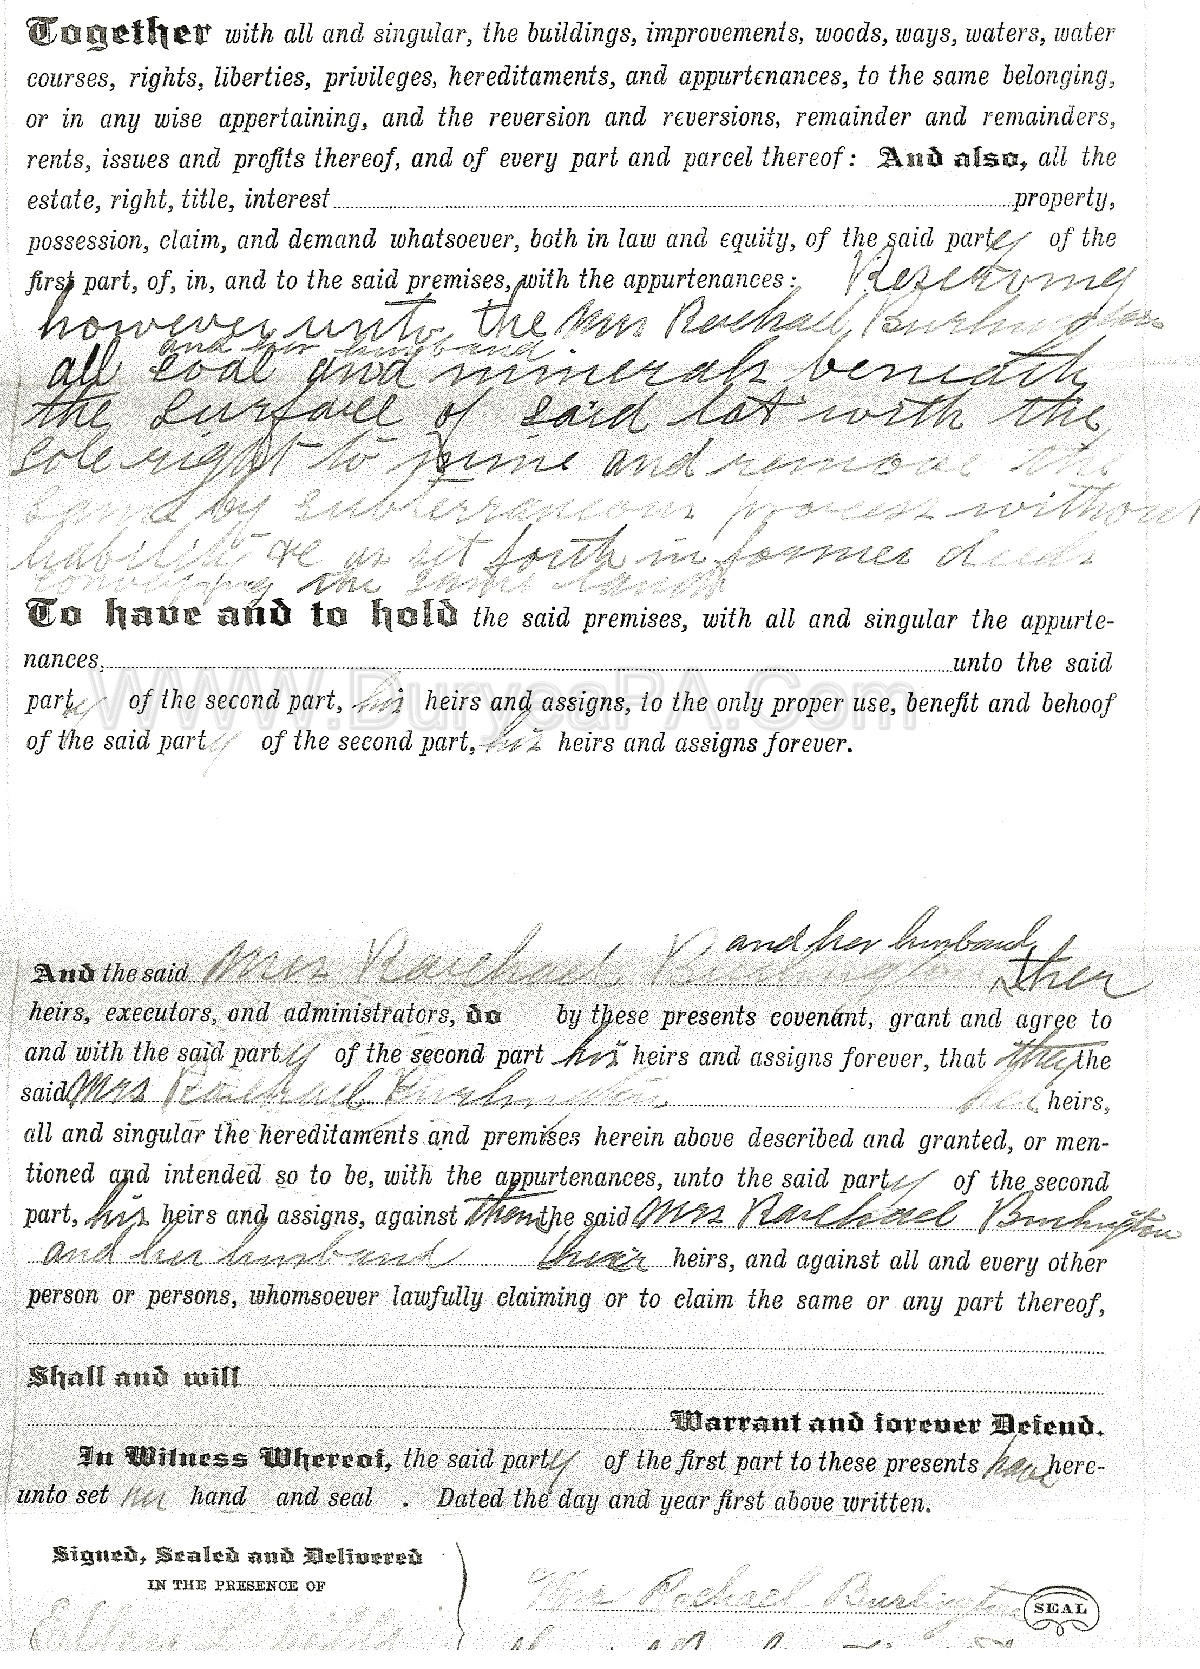 Together with all and singular, the buildings, improvements, woods, ways, waters, water
courses, rights, liberties, privileges, hereditaments, and appurtenances, to the same belonging,
or in any wise appertaining, and the reversion and reversions, remainder and remainders,
rents, issues and profits thereof, and of every part and parcel thereof: And also, all the
estate, right, title, interest property,
possession, claim, and demand whatsoever, both in law and equity, of the said party of the
first part, of, in, and to the said premises, with the appurtenances: Reserving
however unto the Mrs Rachael Burlington
and her husband
all coal and minerals beneath
the surface of said lot with the
sole right to mine and remove the
same by subterraneous process without
liability &c as set forth in former deeds
conveying the same land
To have and to hold the said premises, with all and singular the appurte-
nances, unto the said
WWW.DuryeaPA.Com
party of the second part, his heirs and assigns, to the only proper use, benefit and behoof
of the said party of the second part, his heirs and assigns forever.
and her husband
And the said Mrs Raichael Burlington ther
heirs, executors, and administrators, do by these presents covenant, grant and agree to
and with the said party of the second part his heirs and assigns forever, that they the
said Mrs Raichael Burlington her heirs,
all and singular the hereditaments and premises herein above described and granted, or men-
tioned and intended so to be, with the appurtenances, unto the said party of the second
part, his heirs and assigns, against them the said Mrs Raichael Burlington
and her husband their heirs, and against all and every other
person or persons, whomsoever lawfully claiming or to claim the same or any part thereof,
Shall and will
Warrant and forever Defend.
In Witness Whereof, the said party of the first part to these presents have here-
unto set her hand and seal . Dated the day and year first above written.
Signed, Sealed and Delivered
IN THE PRESENCE OF
Mrs Rachael Burlington SEAL